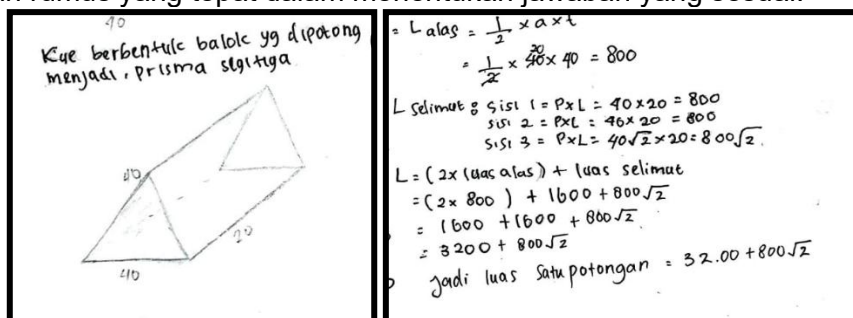 an rumus yang tepat dalam menentukan jawaban yang sesuai.
40
Kue berbentuk balok yg dipotong
menjadi, prisma segitiga
40
20
40
= L alas = 1/2 × a × t
= 1/2 × 40 20 × 40 = 800
L selimut : sisi 1 = P×L = 40×20 = 800
sisi 2 = P×L = 40×20 = 800
sisi 3 = P×L = 40√2 × 20 = 800√2.
L = (2× luas alas) + luas selimut
= (2× 800) + 1600 + 800√2
= 1600 + 1600 + 800√2
= 3200 + 800√2
Jadi luas satu potongan = 32.00 + 800√2